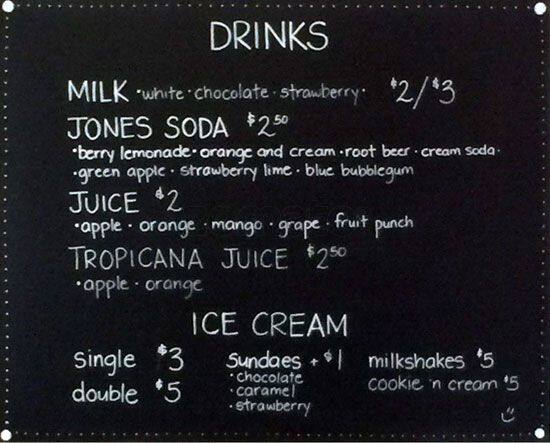 DRINKS
MILK · white · chocolate · strawberry · $2/$3
JONES SODA $2.50
· berry lemonade · orange and cream · root beer · cream soda ·
· green apple · strawberry lime · blue bubblegum
JUICE $2
· apple · orange · mango · grape · fruit punch
TROPICANA JUICE $2.50
· apple · orange
ICE CREAM
single $3 Sundaes + $1 milkshakes $5
· chocolate cookie 'n cream $5
double $5 · caramel
· strawberry